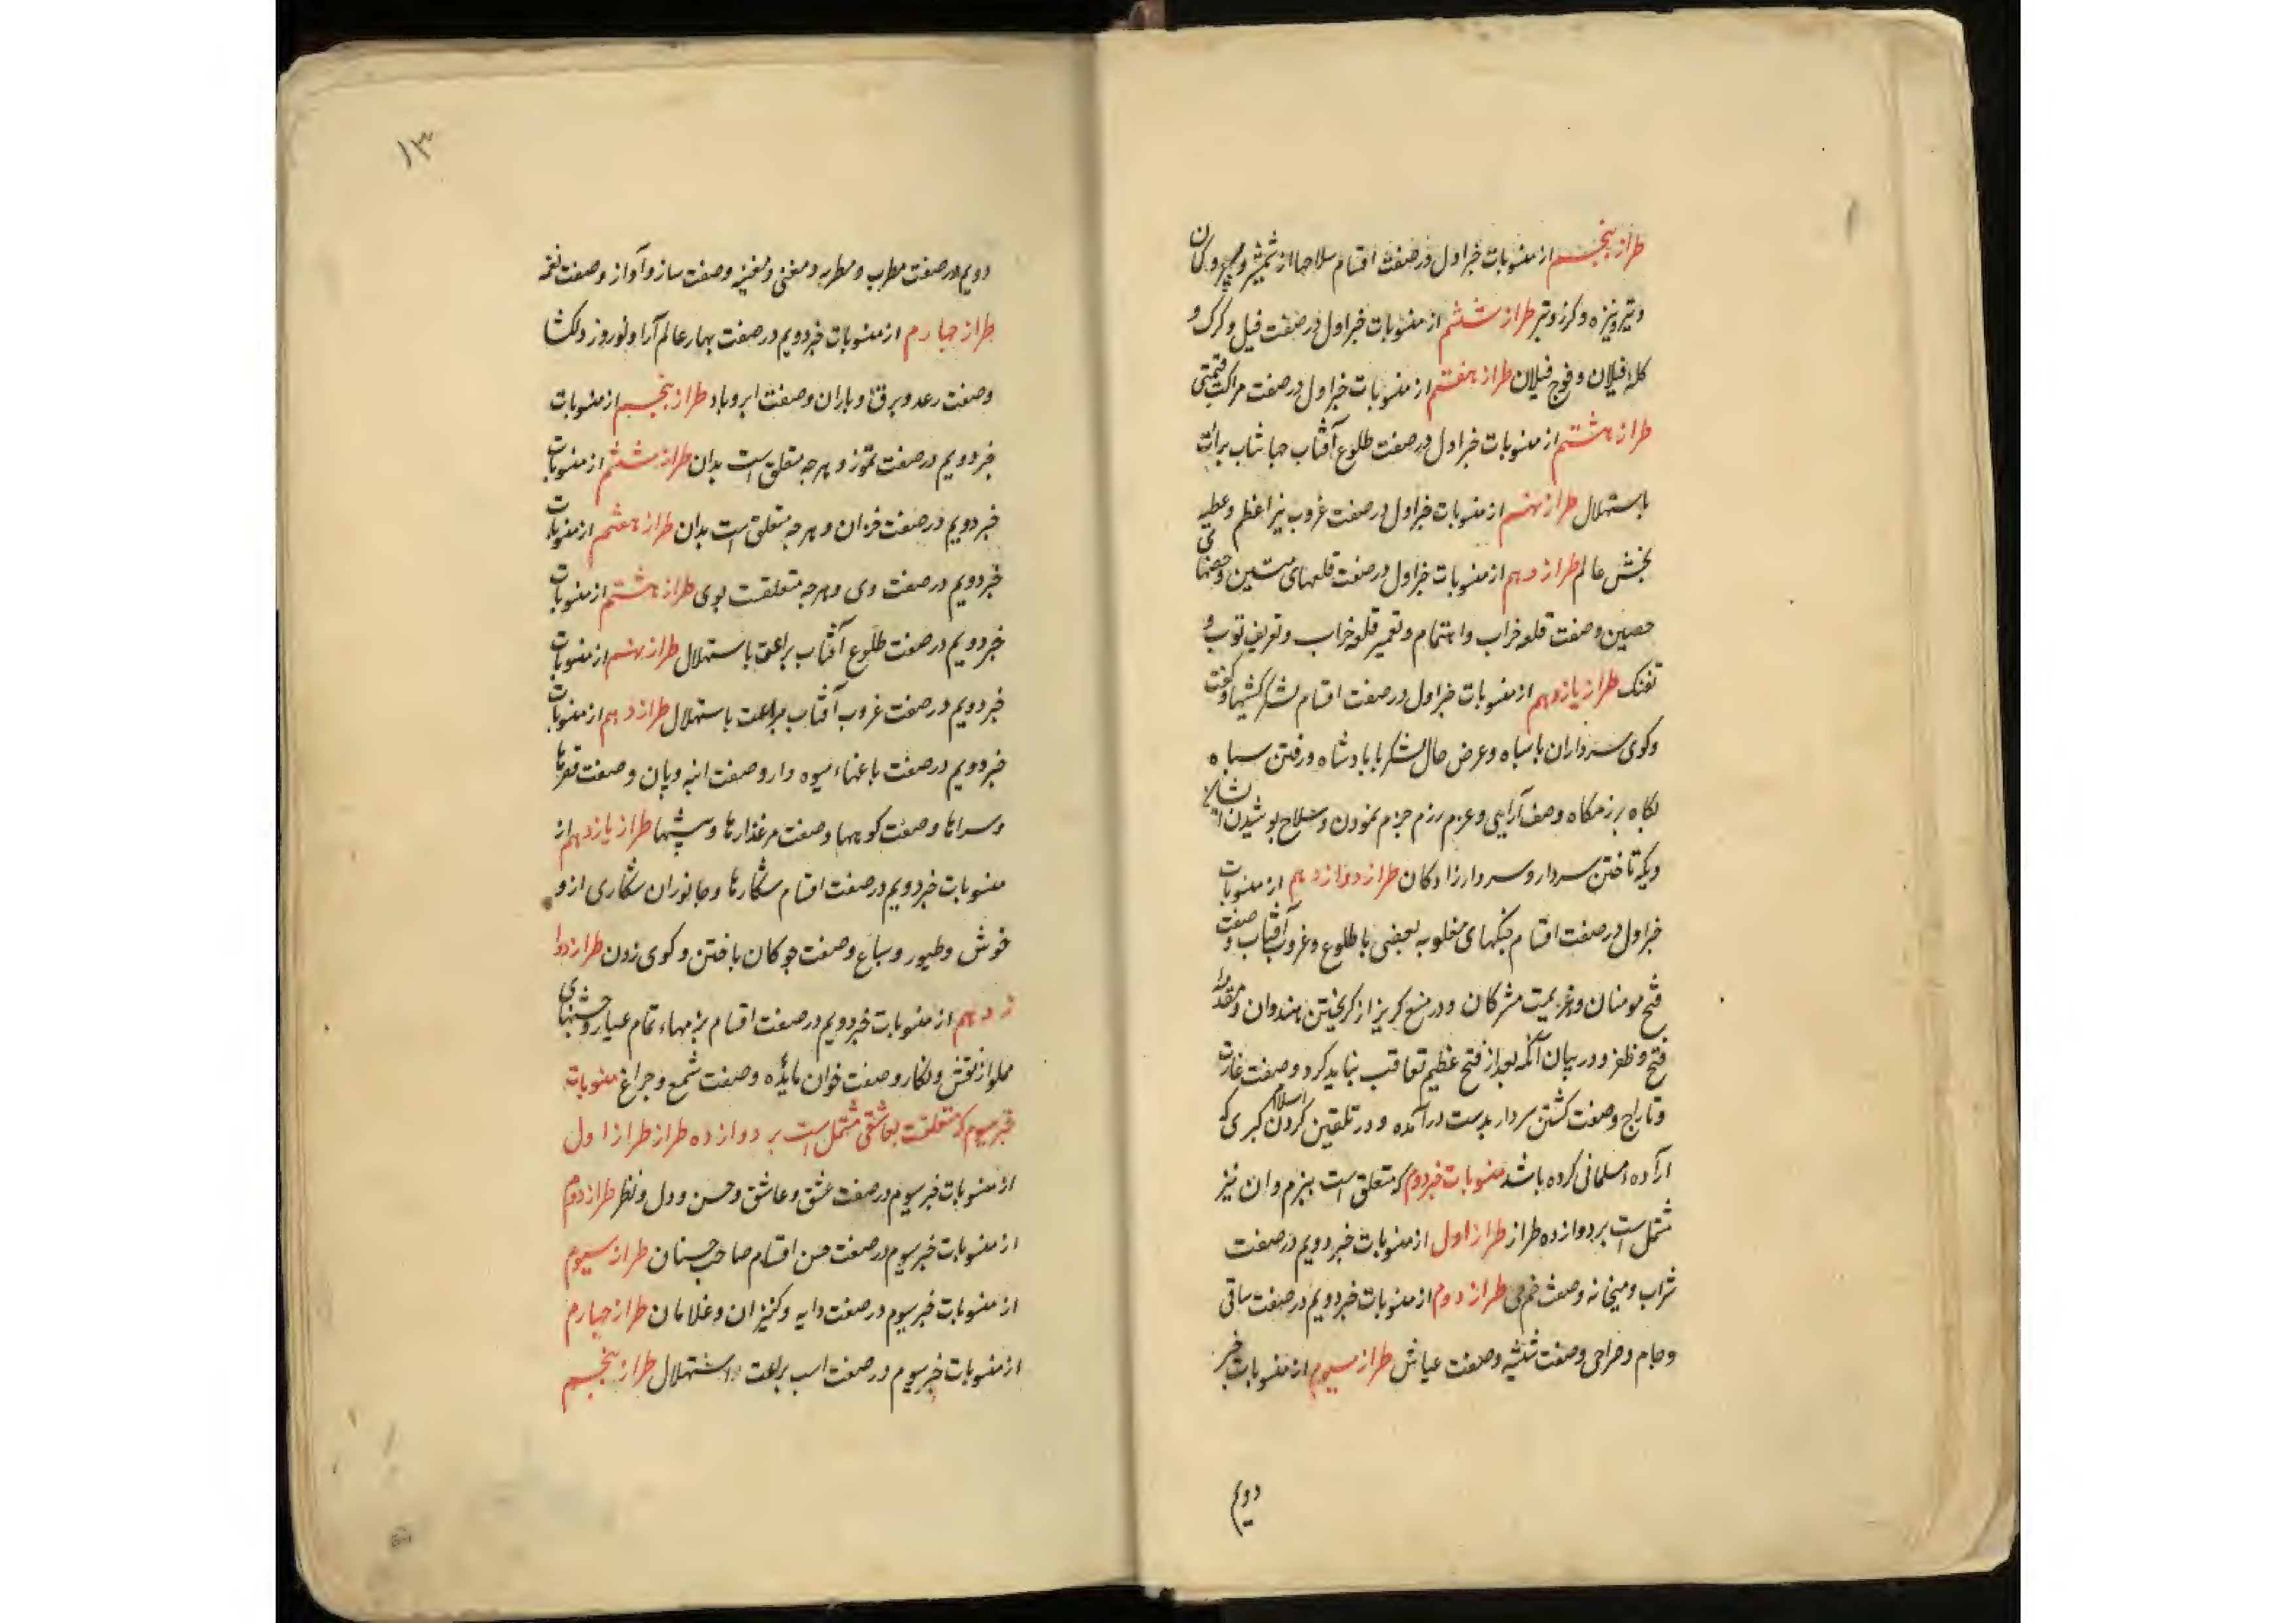 طراز پنجسم از منسوبات خبر اول در صفت اقسام سلاحها از شمشیر و سپر و کمان
و تیر و نیزه و کرز و تبر طراز ششم از منسوبات خبر اول در صفت فیل و کرک و
کلهٔ فیلان و فوج فیلان طراز هفتم از منسوبات خبر اول در صفت مراکب قیمتی
طراز هشتم از منسوبات خبر اول در صفت طلوع آفتاب جهانتاب براعت
باستهلال طراز نهم از منسوبات خبر اول در صفت غروب نیر اعظم و عطیه
بخش عالم طراز دهم از منسوبات خبر اول در صفت قلعهای متین و حصنهای
حصین و صفت قلعه خراب و اهتمام و تعمیر قلعه خراب و تعریف توپ و
تفنک طراز یازدهم از منسوبات خبر اول در صفت اقسام لشکر کشیها و کفت
و کوی سرداران با سپاه و عرض حال لشکر با پادشاه و رفتن سپاه
بکاه برزمکاه وصف آرایی و عزم رزم جزم نمودن و سلاح پوشیدن ایشان
و یکه تاختن سردار و سردارزادکان طراز دوازدهم از منسوبات
خبر اول در صفت اقسام جنکهای مغلوبه بعضی با طلوع و غروب آفتاب و صفت
فتح مومنان و هزیمت مشرکان و در منع کریز از کریختن هندوان و مقدمهٔ
فتح و ظفر و در بیان آنکه بعد از فتح عظیم تعاقب نباید کرد و صفت غارت
و تاراج و صفت کشتن سردار بدست درآمده و در تلقین کردن اسلام کبری که
ارآده مسلمانی کرده باشد منسوبات خبر دوم که متعلق است ببزم و ان نیز
مشتمل است بر دوازده طراز طراز اول از منسوبات خبر دویم در صفت
شراب و میخانه و صفت خم می طراز دوم از منسوبات خبر دویم در صفت ساقی
و جام و صراحی و صفت شیشه و صفت عیاش طراز سیوم از منسوبات خبر
دویم
۱۳
دویم در صفت مطرب و مطربه و مغنی و مغنیه و صفت ساز و آواز و صفت نغمه
طراز چهارم از منسوبات خبر دویم در صفت بهار عالم آرا و نوروز دلکشا
و صفت رعد و برق و باران و صفت ابر و باد طراز پنجسم از منسوبات
خبر دویم در صفت تموز و هرچه متعلق است بدان طراز ششم از منسوبات
خبر دویم در صفت خزان و هرچه متعلق است بدان طراز هفتم از منسوبات
خبر دویم در صفت دی و هرچه متعلقست بوی طراز هشتم از منسوبات
خبر دویم در صفت طلوع آفتاب براعت باستهلال طراز نهم از منسوبات
خبر دویم در صفت غروب آفتاب براعت باستهلال طراز دهم از منسوبات
خبر دویم در صفت باغهاء میوه دار و صفت انبه و پان و صفت قصرها
و سراها و صفت کوهها و صفت مرغذارها و بیشها طراز یازدهم از
منسوبات خبر دویم در صفت اقسام شکارها و جانوران شکاری از و
حوش و طیور و سباع و صفت چوکان بافتن و کوی زدن طراز دوا
زدهم از منسوبات خبر دویم در صفت اقسام بزمهاء تمام عیار و جشنهای
مملو از نقش و نکار و صفت خوان مایٔده و صفت شمع و چراغ منسوبات
خبر سیوم که متعلقست بعاشقی مشتمل است بر دوازده طراز طراز اول
از منسوبات خبر سیوم در صفت عشق و عاشق و حسن و دل و نظر طراز دوم
از منسوبات خبر سیوم در صفت حسن اقسام صاحب حسنان طراز سیوم
از منسوبات خبر سیوم در صفت دایه و کنیزان و غلامان طراز چهارم
از منسوبات خبر سیوم در صفت اسب براعت استهلال طراز پنجسم